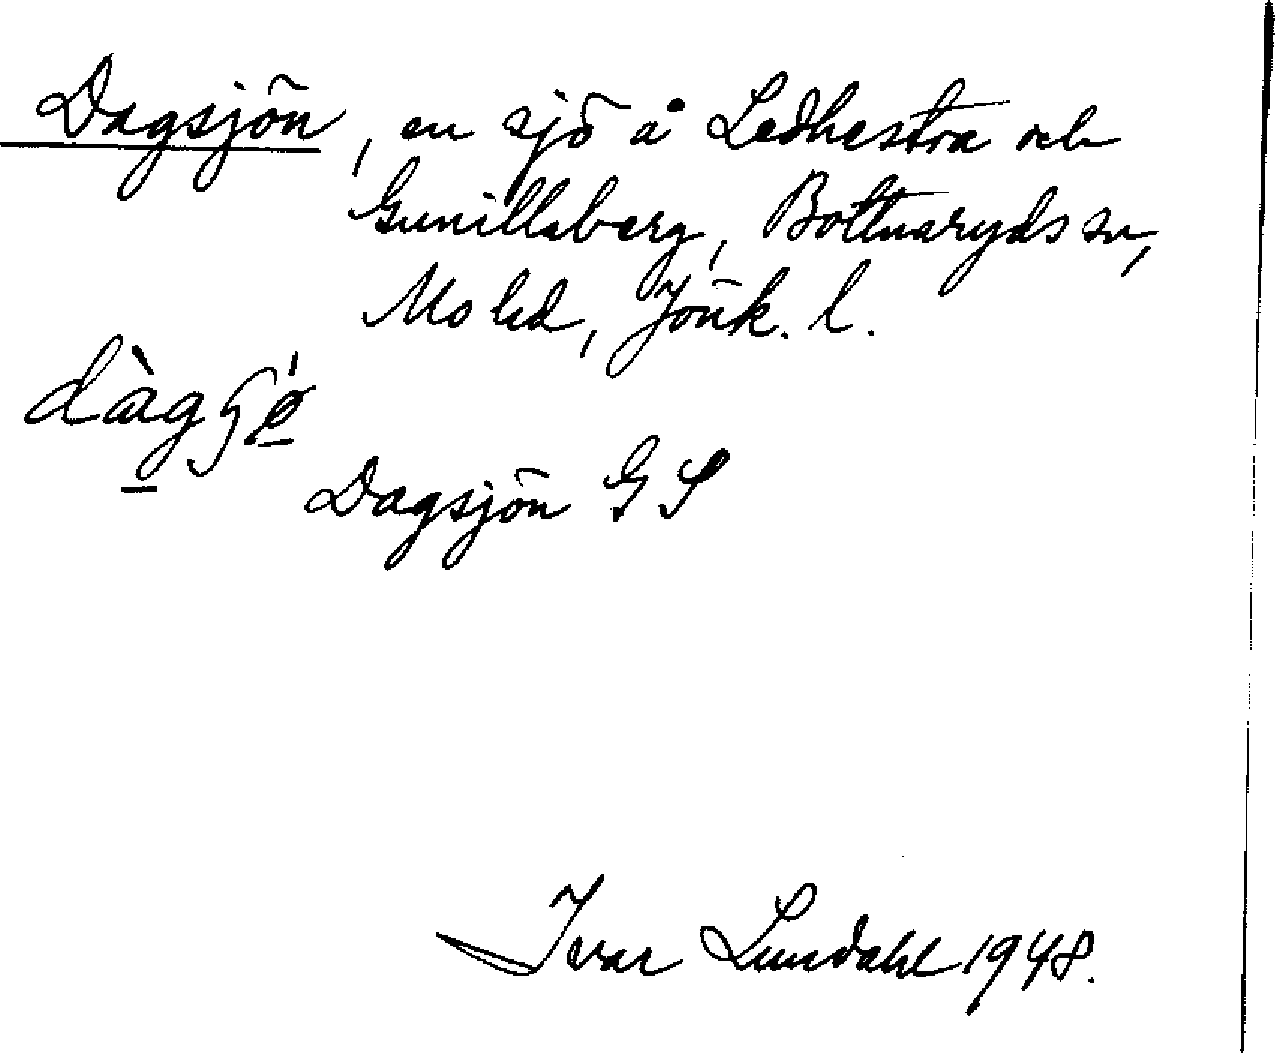 Dagsjön, en sjö å Ledhestra och
Gunillaberg, Bottnaryds sn,
Mo hd, Jönk. l.
Dagsjön G S
Ivar Lundahl 1948.